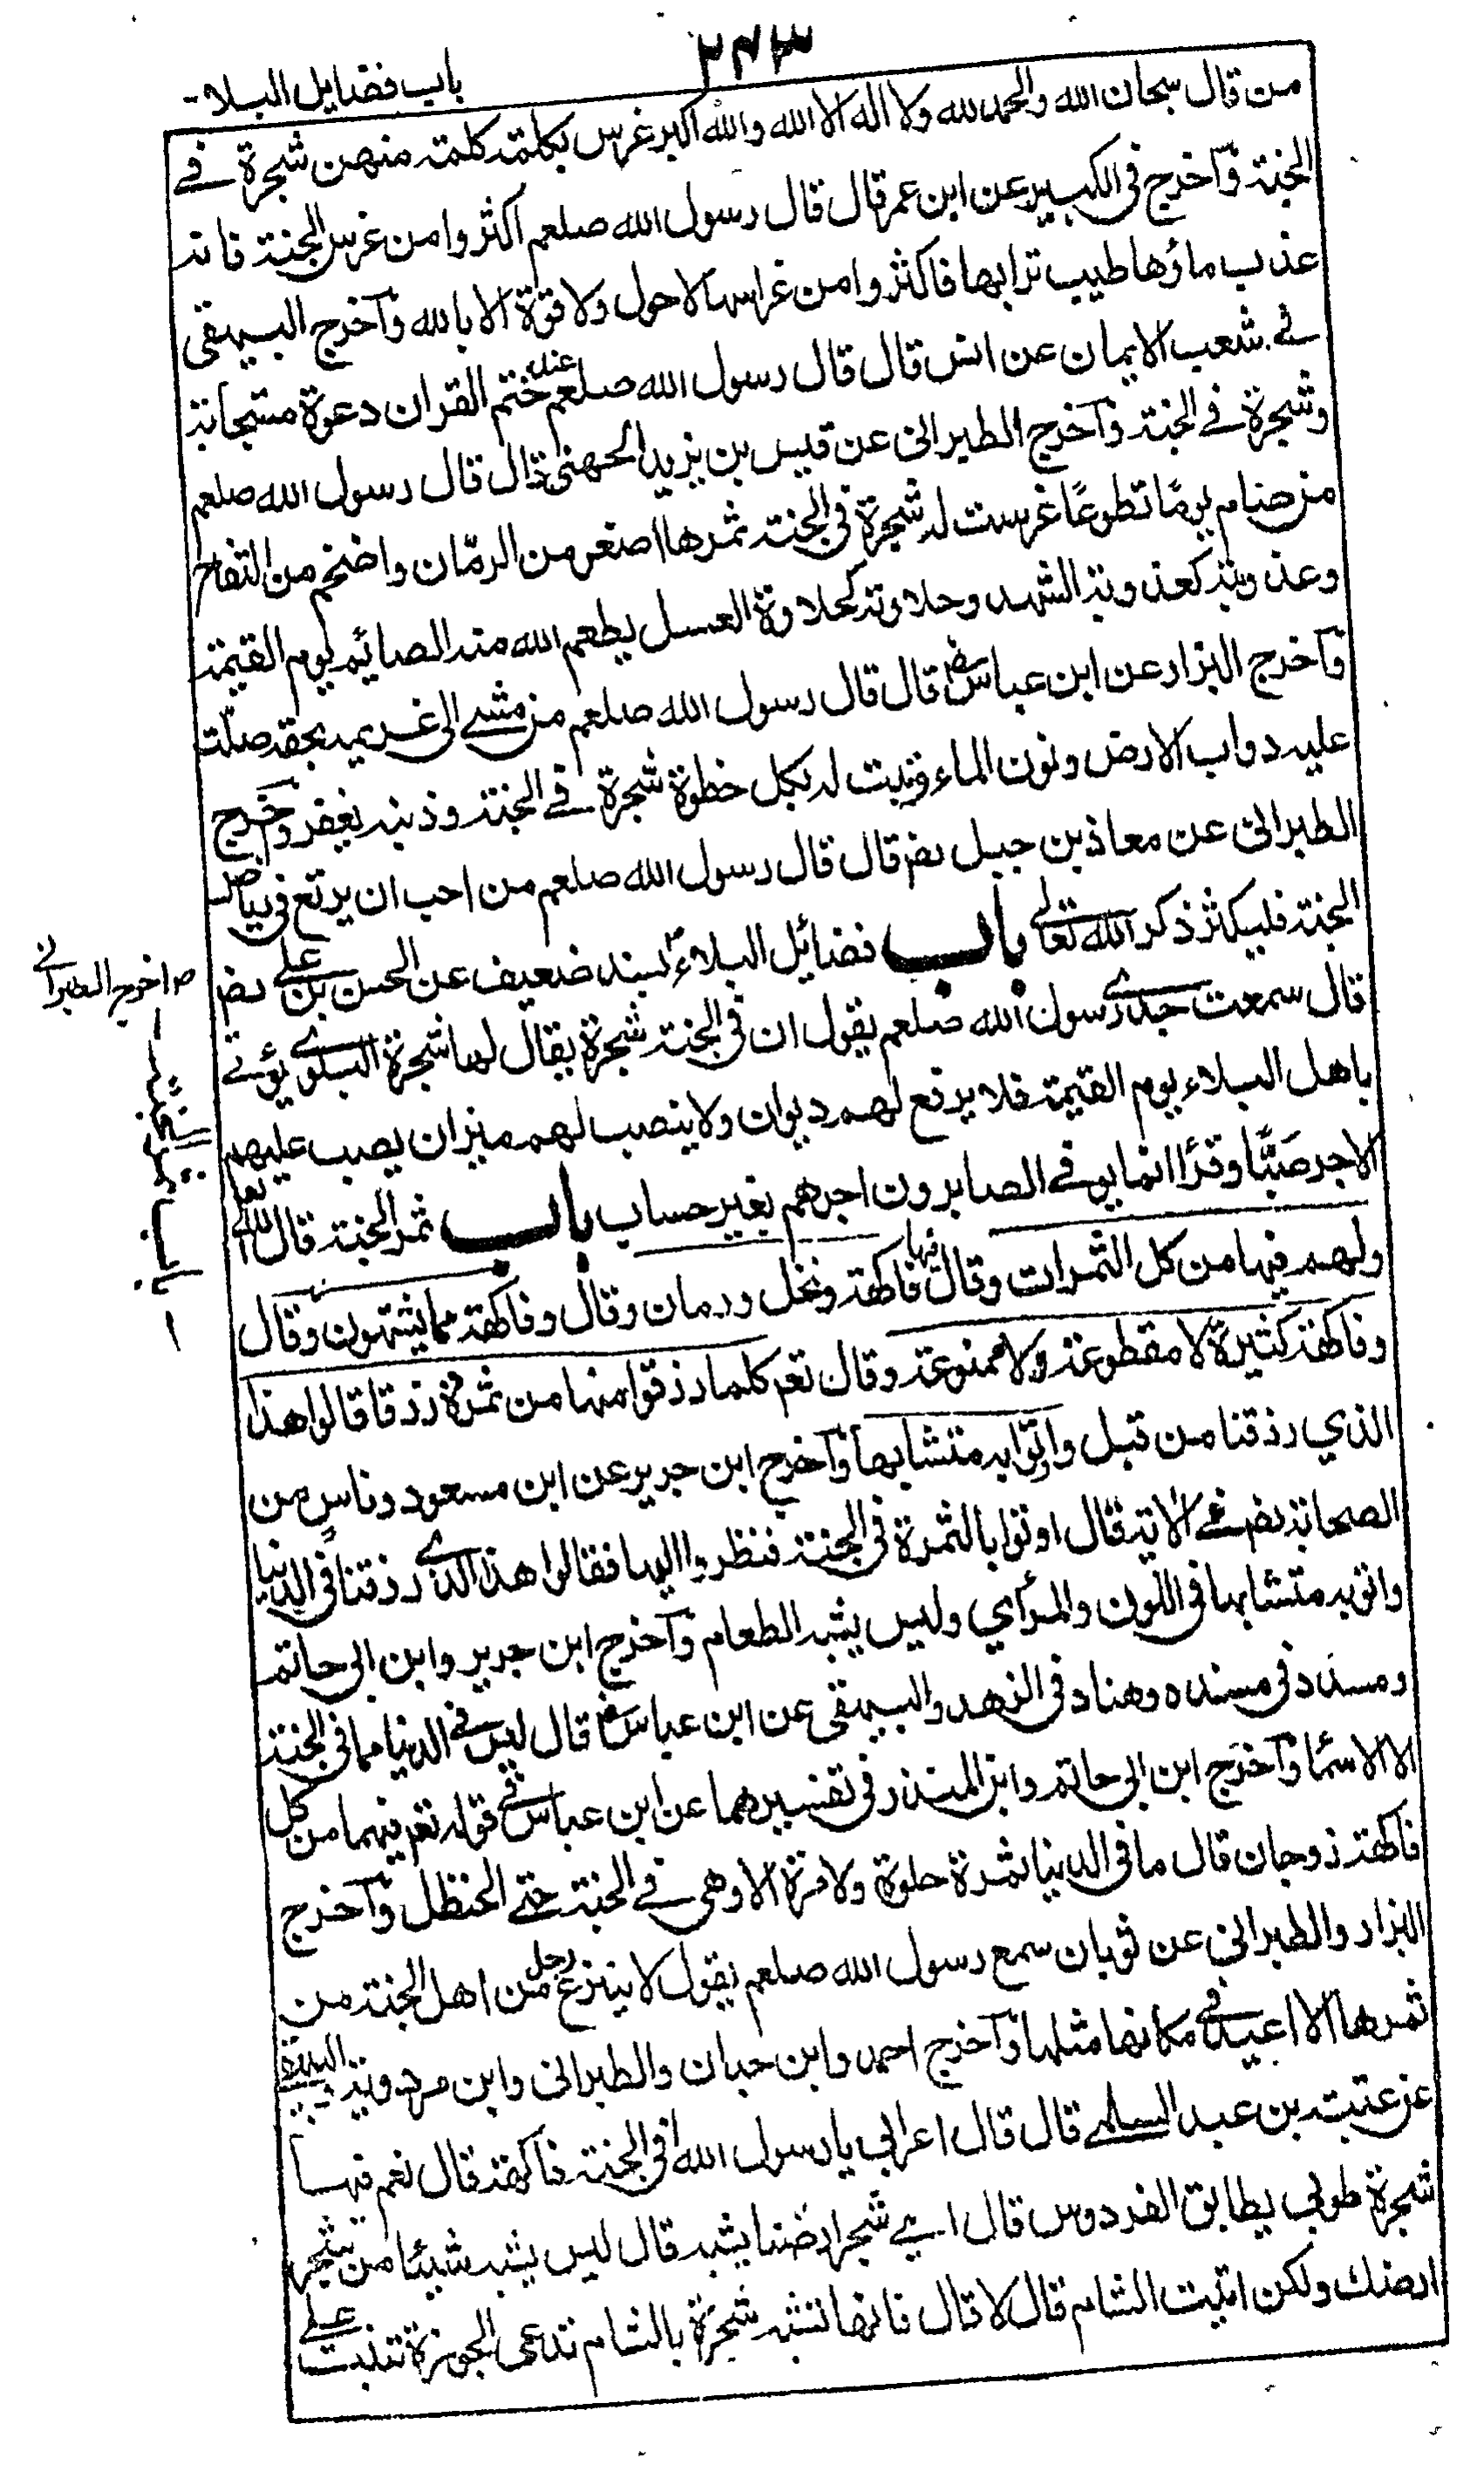 ۲۴۳
باب فضایل البلاء
من قال سبحان الله والحمد لله ولا اله الا الله والله اكبر غرس بكلمة كلمة منهن شجرة في
الجنة وآخرج في الكبير عن ابن عمر قال قال رسول الله صلعم اكثروا من غرس الجنة فانه
عذب ماؤها طيب ترابها فاكثروا من غراسها لا حول ولا قوة الا بالله وآخرج البيهقي
في شعب الايمان عن انس قال قال رسول الله صلعم عند ختم القران دعوة مستجابة
وشجرة في الجنة وآخرج الطبراني عن قيس بن يزيد الجهني قال قال رسول الله صلعم
من صام يومًا تطوعًا غرست له شجرة في الجنة ثمرها اصغر من الرمّان واضخم من التفاح
وعذوبته كعذوبة الشهد وحلاوته كحلاوة العسل يطعم الله منه الصائم يوم القيمة
وآخرج البزار عن ابن عباس رض قال قال رسول الله صلعم من مشى الى غريمه بحقه صلّت
عليه دواب الارض ونون الماء ونبت له بكل خطوة شجرة في الجنة وذنبه يغفر وآخرج
الطبراني عن معاذ بن جبل رض قال قال رسول الله صلعم من احب ان يرتع في رياض
الجنة فليكثر ذكر الله تعالى باب فضائل البلاء بسند ضعيف عن الحسن بن علي رض
ص اخرج الطبراني
قال سمعت جدي رسول الله صلعم يقول ان في الجنة شجرة يقال لها شجرة البلوى يؤتى
باهل البلاء يوم القيمة فلا يرفع لهم ديوان ولا ينصب لهم ميزان يصب عليهم
الاجر صبًّا وقرًا انما يوفى الصابرون اجرهم بغير حساب باب ثمر الجنة قال الله تعالى
ولهم فيها من كل الثمرات وقال فيها فاكهة ونخل ورمان وقال وفاكهة مما يشتهون وقال
وفاكهة كثيرة لا مقطوعة ولا ممنوعة وقال تعم كلما رزقوا منها من ثمرة رزقا قالوا هذا
الذي رزقنا من قبل واتوا به متشابها وآخرج ابن جرير عن ابن مسعود وناس من
الصحابة رض في الاية قال اوتوا بالثمرة في الجنة فنظروا اليها فقالوا هذا الذي رزقنا في الدنيا
واتو به متشابها في اللون والمرأي وليس يشبه الطعام وآخرج ابن جرير وابن ابى حاتم
ومسدد في مسنده وهناد في الزهد والبيهقي عن ابن عباس رض قال ليس في الدنيا مما في الجنة
الا الاسمًا وآخرج ابن ابى حاتم وابن المنذر في تفسيرهما عن ابن عباس في قوله تعم فيهما من كل
فاكهة زوجان قال ما في الدنيا ثمرة حلوة ولا مرة الا وهى في الجنة حتى الحنظل وآخرج
البزار والطبراني عن ثوبان سمع رسول الله صلعم يقول لا ينزع رجل من اهل الجنة من
ثمرها الا اعيد في مكانها مثلها وآخرج احمد وابن حبان والطبراني وابن مردوية والبيهقي
عن عتبة بن عبد السلمي قال قال اعرابي يا رسول الله افي الجنة فاكهة قال نعم فيها
شجرة طوبى يطابق الفردوس قال اي شجر ارضنا يشبه قال ليس يشبه شيئا من شجر
ارضك ولكن اتيت الشام قال لا قال فانها تشبه شجرة بالشام تدعى الجوزة تنبت على